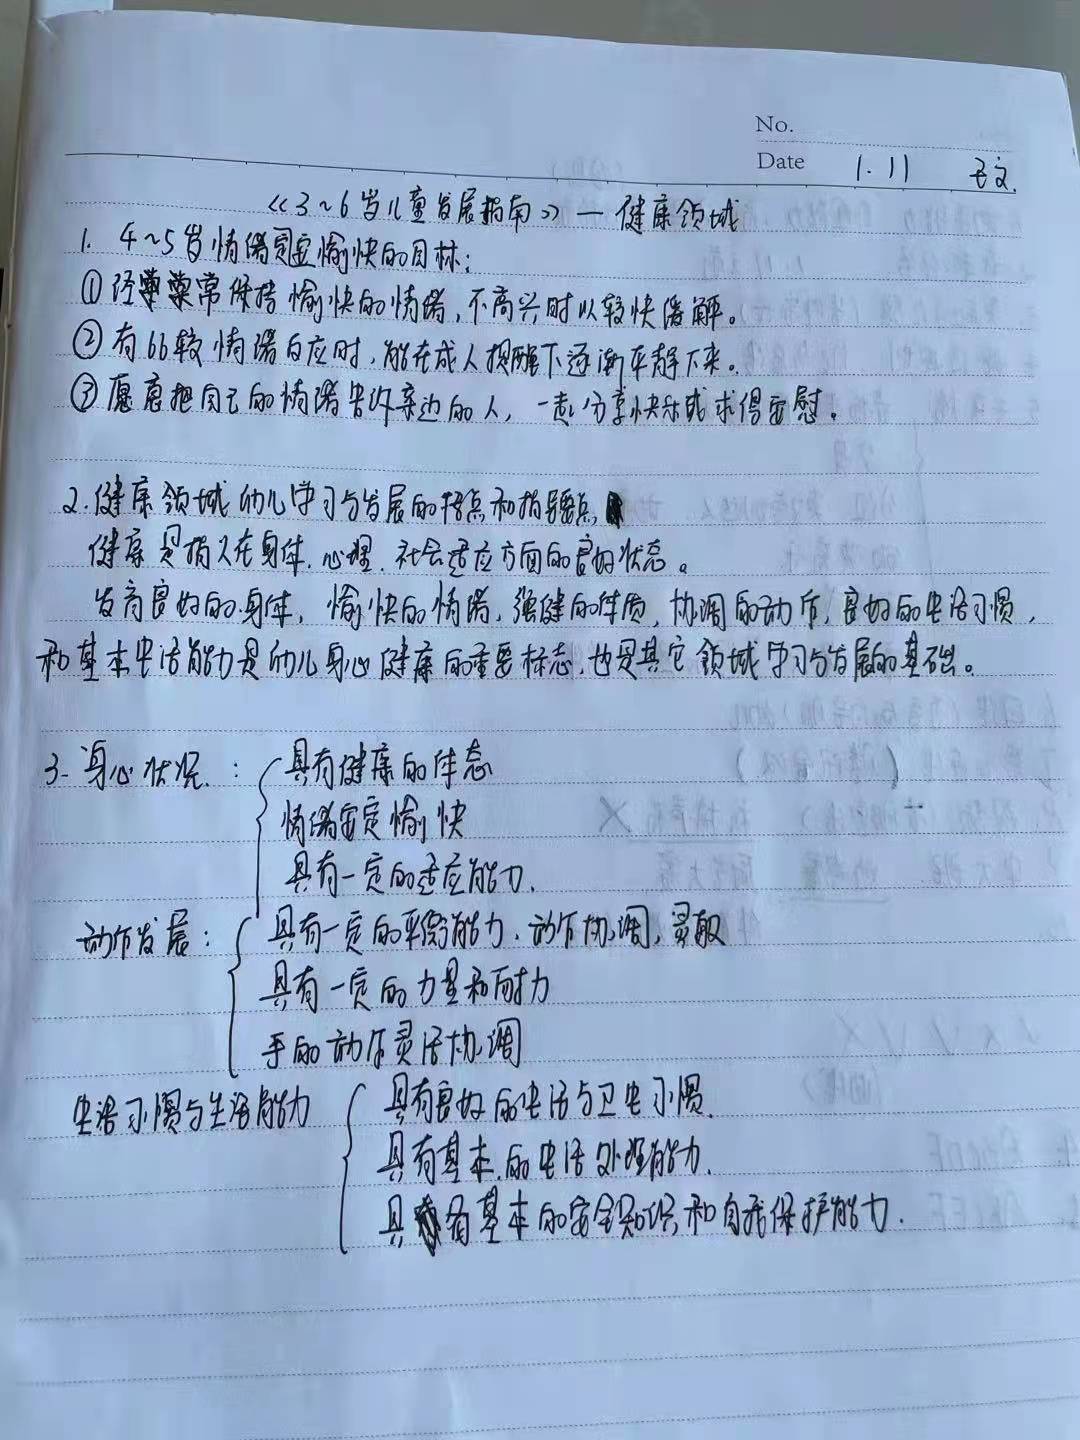 No.
Date 1.11
《3~6岁儿童发展指南》— 健康领域
1. 4~5岁情绪安定愉快的目标：
① 经常保持愉快的情绪，不高兴时以较快缓解。
② 有比较情绪反应时，能在成人提醒下逐渐平静下来。
③ 愿意把自己的情绪告诉亲边的人，一起分享快乐或求得安慰。
2. 健康领域幼儿学习与发展的特点和指要点
健康是指人在身体、心理、社会适应方面的良好状态。
发育良好的身体，愉快的情绪，强健的体质，协调的动作，良好的生活习惯，
和基本生活能力是幼儿身心健康的重要标志，也是其它领域学习与发展的基础。
3. 身心状况：
具有健康的体态
情绪安定愉快
具有一定的适应能力.
动作发展：
具有一定的平衡能力、动作协调，灵敏
具有一定的力量和耐力
手的动作灵活协调
生活习惯与生活能力
具有良好的生活与卫生习惯.
具有基本的生活处理能力.
具有基本的安全知识和自我保护能力.